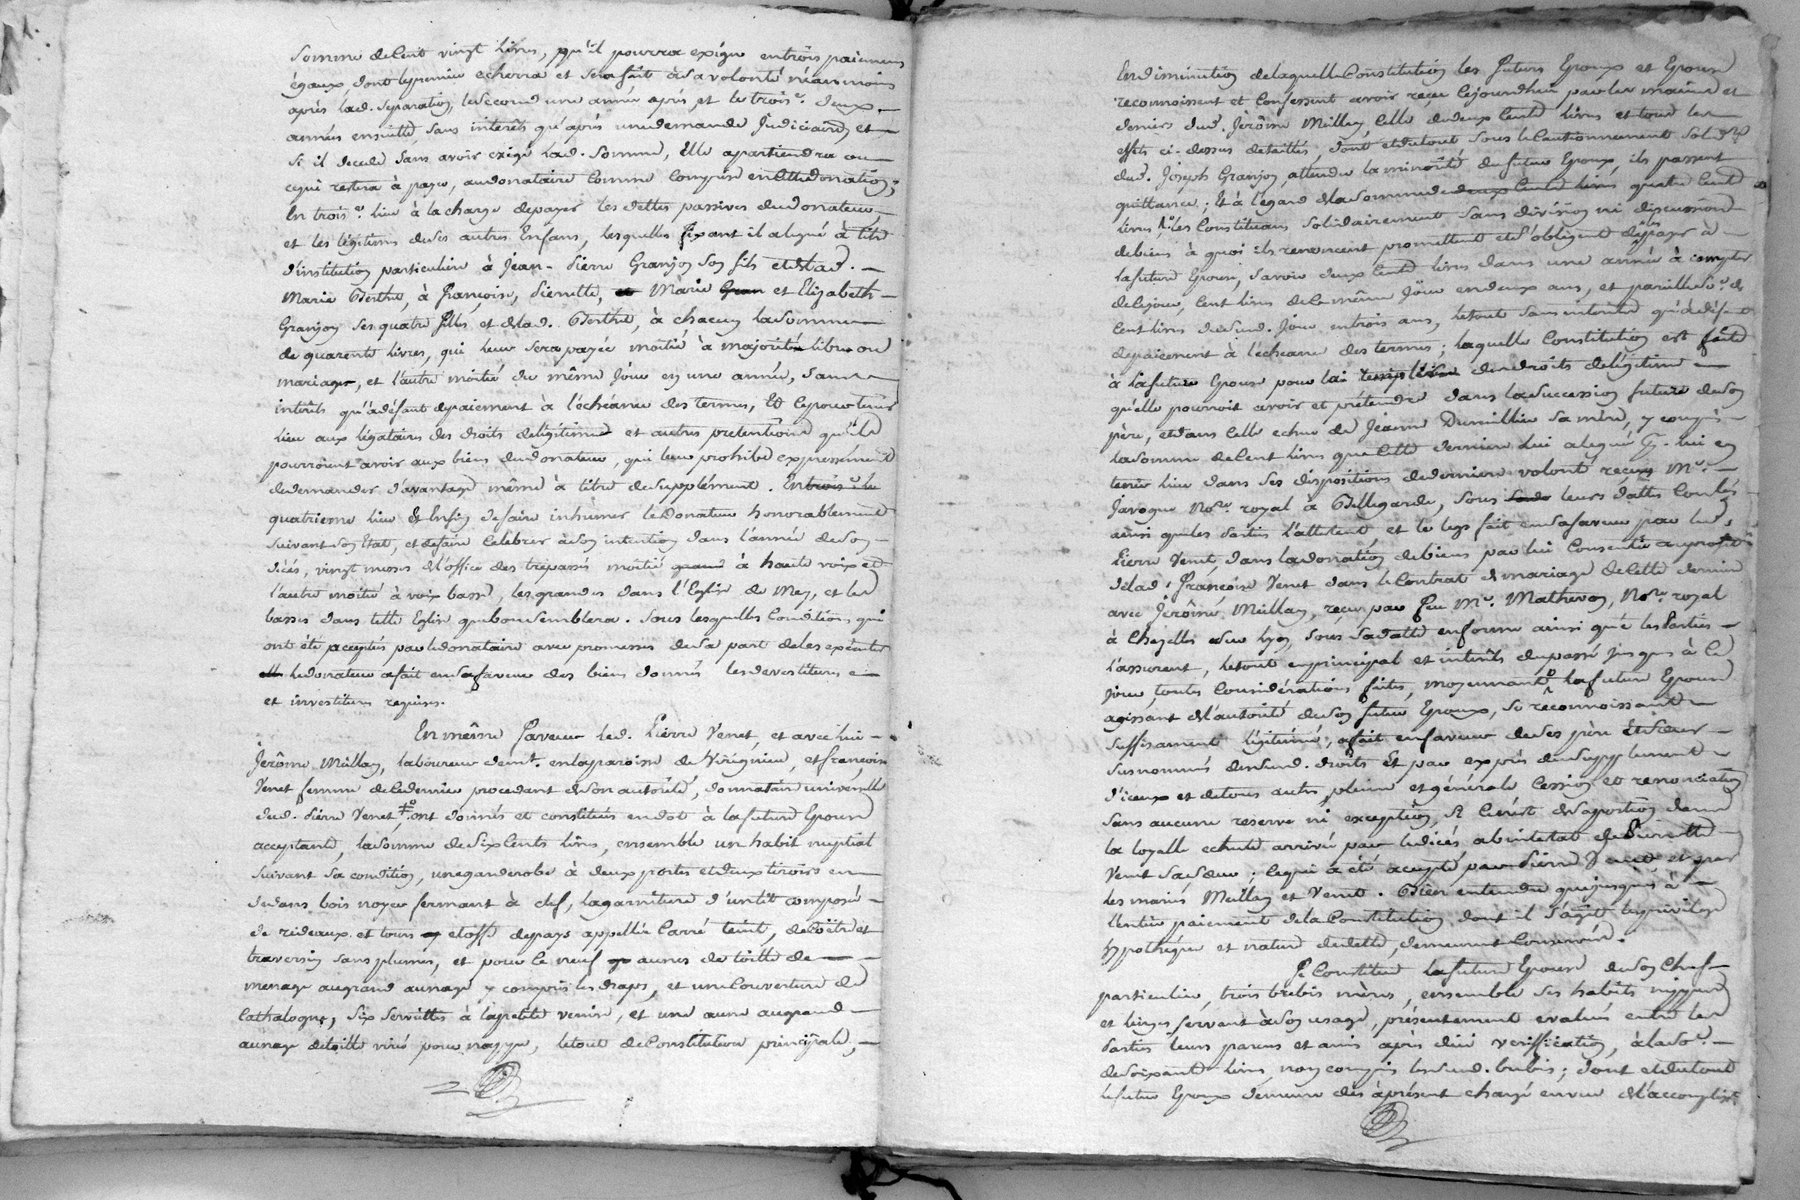 somme de cent vingt livres, qu'il pourra exiger en trois paiemens
égaux dont le premier echerra et sera fait à sa volonté néanmoins
après lad. separation, le second une année après et le trois.e deux
années ensuitte, sans interêts qu'après une demande judiciaire, et
si il decede sans avoir exigé lad. somme, elle apartiendra ou
ce qui restera à payer, au donataire comme comprise en cette donation;
En trois.e lieu à la charge de payer les dettes passives du donateur,
et les légitimes de ses autres Enfans, lesquelles fixant il a legué à titre
d'institution particulière à Jean-Pierre Granjon son fils et de lad.
Marie Berthe, à françoise, Pierrette, Marie et Elizabeth
Granjon ses quatre filles, et de lad. Berthe, à chacun la somme
de quarente livres, qui leur sera payée moitié à majorité libre ou
mariage, et l'autre moitié du même jour en une année, sans
interêts qu'à défaut de paiement à l'échéance des termes, Et ce pour tenir
lieu aux légataires des droits de légitime et autres pretentions qu'ils
pourroient avoir aux biens du donateur, qui leur prohibe expressément
de demander d'avantage même à titre de supplément. En trois.e lieu
quatrieme lieu Et Enfin de faire inhumer le Donateur honorablement
suivant son Etat, et de faire célébrer à son intention dans l'année de son
décés, vingt messes de l'office des trépassés moitié à haute voix et
l'autre moitié à voix basse, les grandes dans l'Eglise de Meys, et les
basses dans telle Eglise que bon semblera. Sous lesquelles conditions qui
ont été acceptés par le donataire avec promesses de sa part de les exécuter
le donateur a fait en sa faveur des biens donnés les devestitures
et investitures requises.
En même faveur led. Pierre Venet, et avec lui
Jérôme Mullay, laboureur demt. en la paroisse de Virignieu, et françoise
Venet femme de ce dernier procedant de son autorité, donnatair universelle
dud. Pierre Venet, ont donnés et constitués en dot à la future Epouse
acceptante, la somme de six cents livres, ensemble un habit nuptial
suivant sa condition, une garderobe à deux portes et deux tiroirs en
dedans bois noyer fermant à clef, la garniture d'un lit composé
de rideaux et tours etoffe de pays appellée Carré teint, de coëtre et
traversin sans plumes, et pour le neuf aunes de toille de
menage au grand aunage y compris les draps, et une couverture de
Cathalogne, six serviettes à la petite venise, et une aune au grand
aunage de toille virée pour nappe, le tout de Constitution principale,
En diminution de laquelle Constitution les futurs Epoux et Epouse
reconnoissent et confessent avoir reçu ce jourdhui par les mains et
deniers dud. Jérôme Mullay, celle de deux cents livres et tous les
effets ci-dessus detaillés, dont et du tout sous le cautionnement sol.re
dud. Joseph Granjon, attendu la minorité du futur Epoux, ils passent
quittance; Et à l'égard de la somme de deux cents livres quatre cent
livres les constituans solidairement sans division ni discussion
de biens à quoi ils renoncent promettent et s'obligent de payer à
la future Epouse, savoir deux cents livres dans une année à compter
de ce jour, cent livres de ce même jour en deux ans, et pareille so.e de
cent livres dud. jour en trois ans, le tout sans interêts qu'à défaut
de paiement à l'echéance des termes; laquelle Constitution est faite
à la future Epouse pour lui des droits de légitime
qu'elle pourroit avoir et prétendre dans la succession future de son
père, et dans celle echue de Jeanne Dumillier sa mère, y compris
la somme de cent livres que cette dernière lui a legué p.r lui en
tenir lieu dans ses dispositions de derniere volonté reçu M.re
Javogue No.re royal à Bellegarde, sous leurs dattes contés
ainsi que les Parties l'attestent, et le legs fait en sa faveur par led.
Pierre Venet dans la donation de biens par lui consentie au profit
de lad. françoise Venet dans le Contrat de mariage de cette derniere
avec Jérôme Mullay, reçu par feu M.e Mathevon, No.re royal
à Chazelles sur Lyon, sous sa datte en forme ainsi que les Parties
l'assurent, le tout en principal et interêts du passé jusques à ce
jour, toutes considérations faites, moyennant ce la future Epouse
agissant de l'autorité de son futur Epoux, se reconnoissant
suffisament légitimée, a fait en faveur de ses père et soeur
susnommés desusd. droits Et par exprès du suppplement
d'iceux et de tous autres pleine et générale cession et renonciation
sans aucune reserve ni exception, Si ce n'est de sa portion dans
la loyalle echute arrivée par le décés ab intestat de Pierrette
Venet sa soeur; ce qui a été accepté par Pierre Venet, et par
les mariés Mullay et Venet. Bien entendu que jusques à
l'entier paiement de la Constitution dont il s'agit les privileges
hypothèques et nature de dette, demeurent conservés.
Se Constitue la future Epouse de son Chef
particulier, trois brebis mères, ensemble ses habits nippes
et linges servant à son usage, présentement evalués entre les
Parties leurs parens et amis après due vérification, à la so.e
de soixante livres, non compris les susd. brebis; dont et du tout
le futur Epoux demeure dès à présent chargé en vue de l'accomplisst.